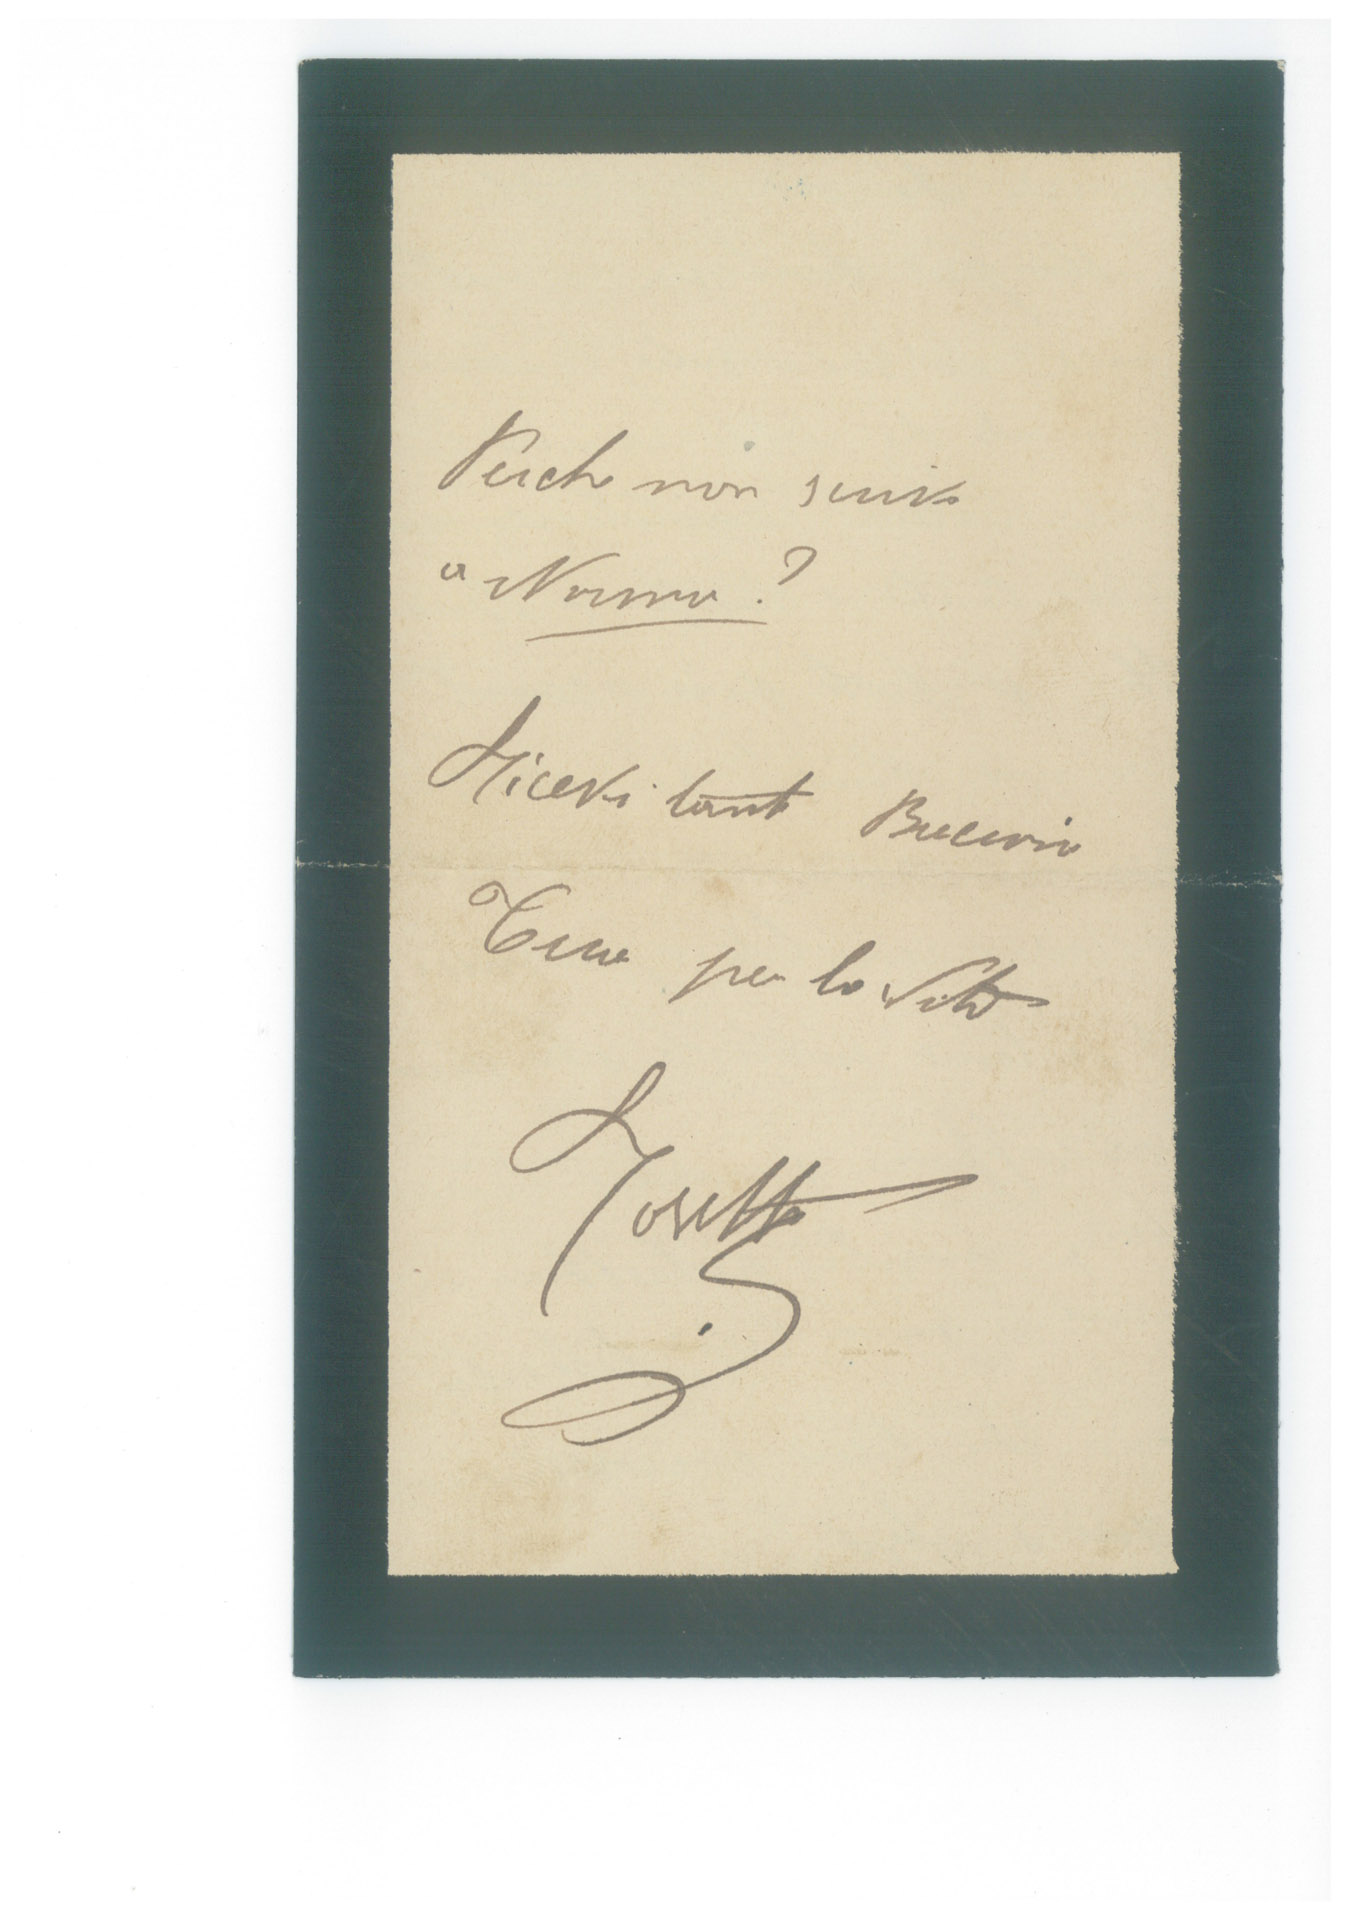 Perche non scrivi
a Norma?
Ricevi tanti Bacioni
Tua per la vita
Rosetta